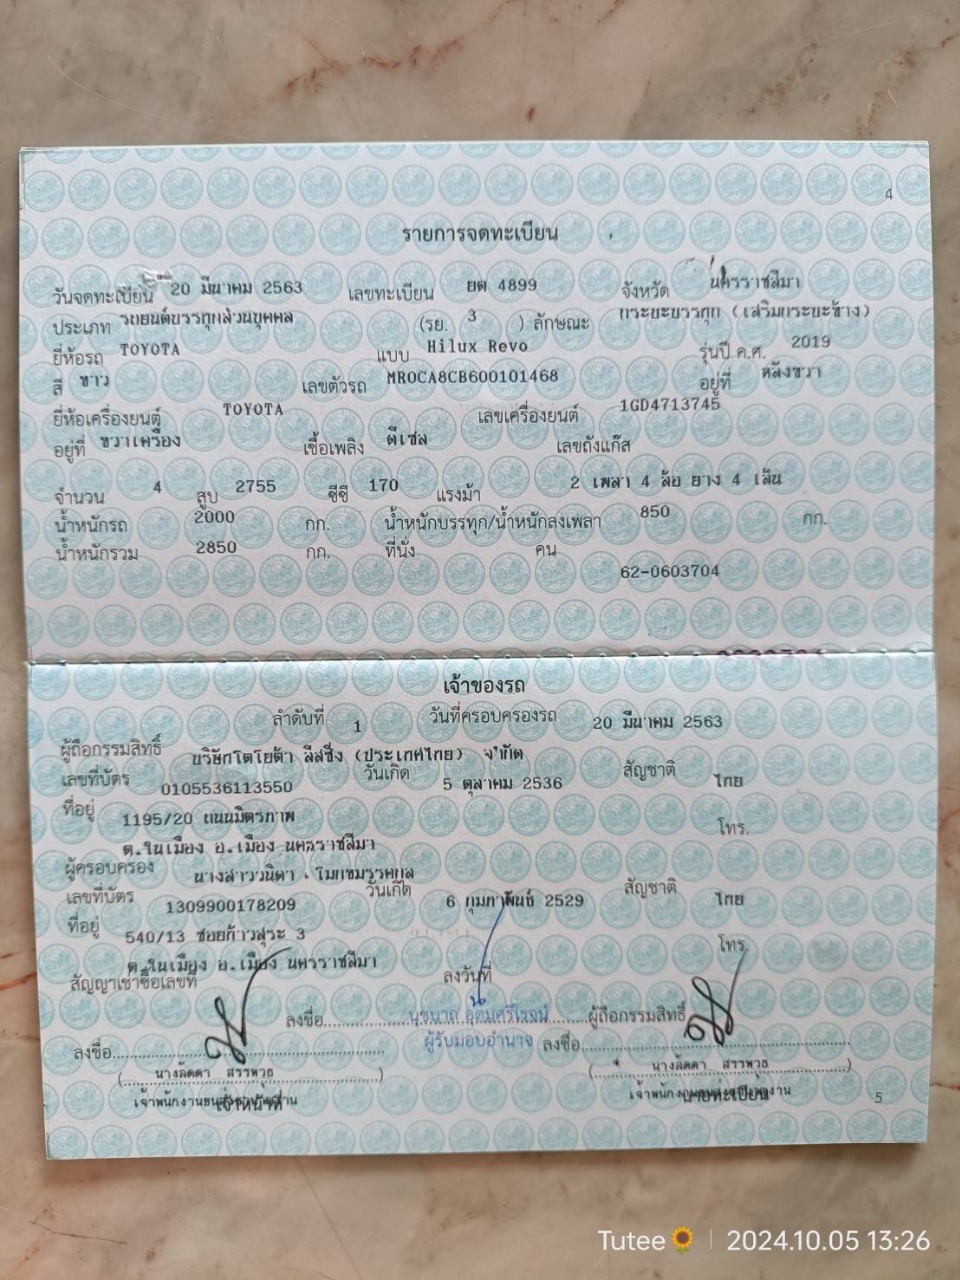 4
รายการจดทะเบียน
วันจดทะเบียน 20 มีนาคม 2563 เลขทะเบียน ยต 4899 จังหวัด นครราชสีมา
ประเภท รถยนต์บรรทุกส่วนบุคคล (รย. 3 ) ลักษณะ กระบะบรรทุก (เสริมกระบะข้าง)
ยี่ห้อรถ TOYOTA แบบ Hilux Revo รุ่นปี ค.ศ. 2019
สี ขาว เลขตัวรถ MR0CA8CB600101468 อยู่ที่ หลังขวา
ยี่ห้อเครื่องยนต์ TOYOTA เลขเครื่องยนต์ 1GD4713745
อยู่ที่ ขวาเครื่อง เชื้อเพลิง ดีเซล เลขถังแก๊ส
จำนวน 4 สูบ 2755 ซีซี 170 แรงม้า 2 เพลา 4 ล้อ ยาง 4 เส้น
น้ำหนักรถ 2000 กก. น้ำหนักบรรทุก/น้ำหนักลงเพลา 850 กก.
น้ำหนักรวม 2850 กก. ที่นั่ง คน
62-0603704
เจ้าของรถ
ลำดับที่ 1 วันที่ครอบครองรถ 20 มีนาคม 2563
ผู้ถือกรรมสิทธิ์ บริษัทโตโยต้า ลีสซิ่ง (ประเทศไทย) จำกัด
เลขที่บัตร 0105536113550 วันเกิด 5 ตุลาคม 2536 สัญชาติ ไทย
ที่อยู่ 1195/20 ถนนมิตรภาพ โทร.
ต.ในเมือง อ.เมือง นครราชสีมา
ผู้ครอบครอง นางสาววนิดา
เลขที่บัตร 1309900178209 วันเกิด 6 กุมภาพันธ์ 2529 สัญชาติ ไทย
ที่อยู่ 540/13 ซอยก้าวสุระ 3 โทร.
ต.ในเมือง อ.เมือง นครราชสีมา
สัญญาเช่าซื้อเลขที่ ลงวันที่
ลงชื่อ นุชนาถ อุดมศรีโรจน์ ผู้ถือกรรมสิทธิ์
ผู้รับมอบอำนาจ
ลงชื่อ ลงชื่อ
(นางลัดดา สรรพวุธ) (นางลัดดา สรรพวุธ)
เจ้าหน้าที่ นายทะเบียน
5
Tutee🌻 | 2024.10.05 13:26